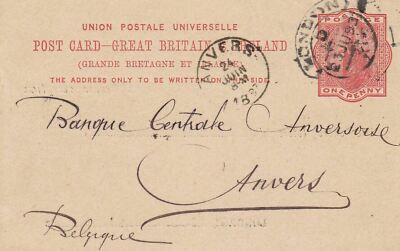 UNION POSTALE UNIVERSELLE
POST CARD–GREAT BRITAIN & IRELAND
(GRANDE BRETAGNE ET IRLANDE)
THE ADDRESS ONLY TO BE WRITTEN ON THIS SIDE.
POSTAGE
ONE PENNY
LONDON
ANVERS
Banque Centrale Anversoise
Anvers
Belgique